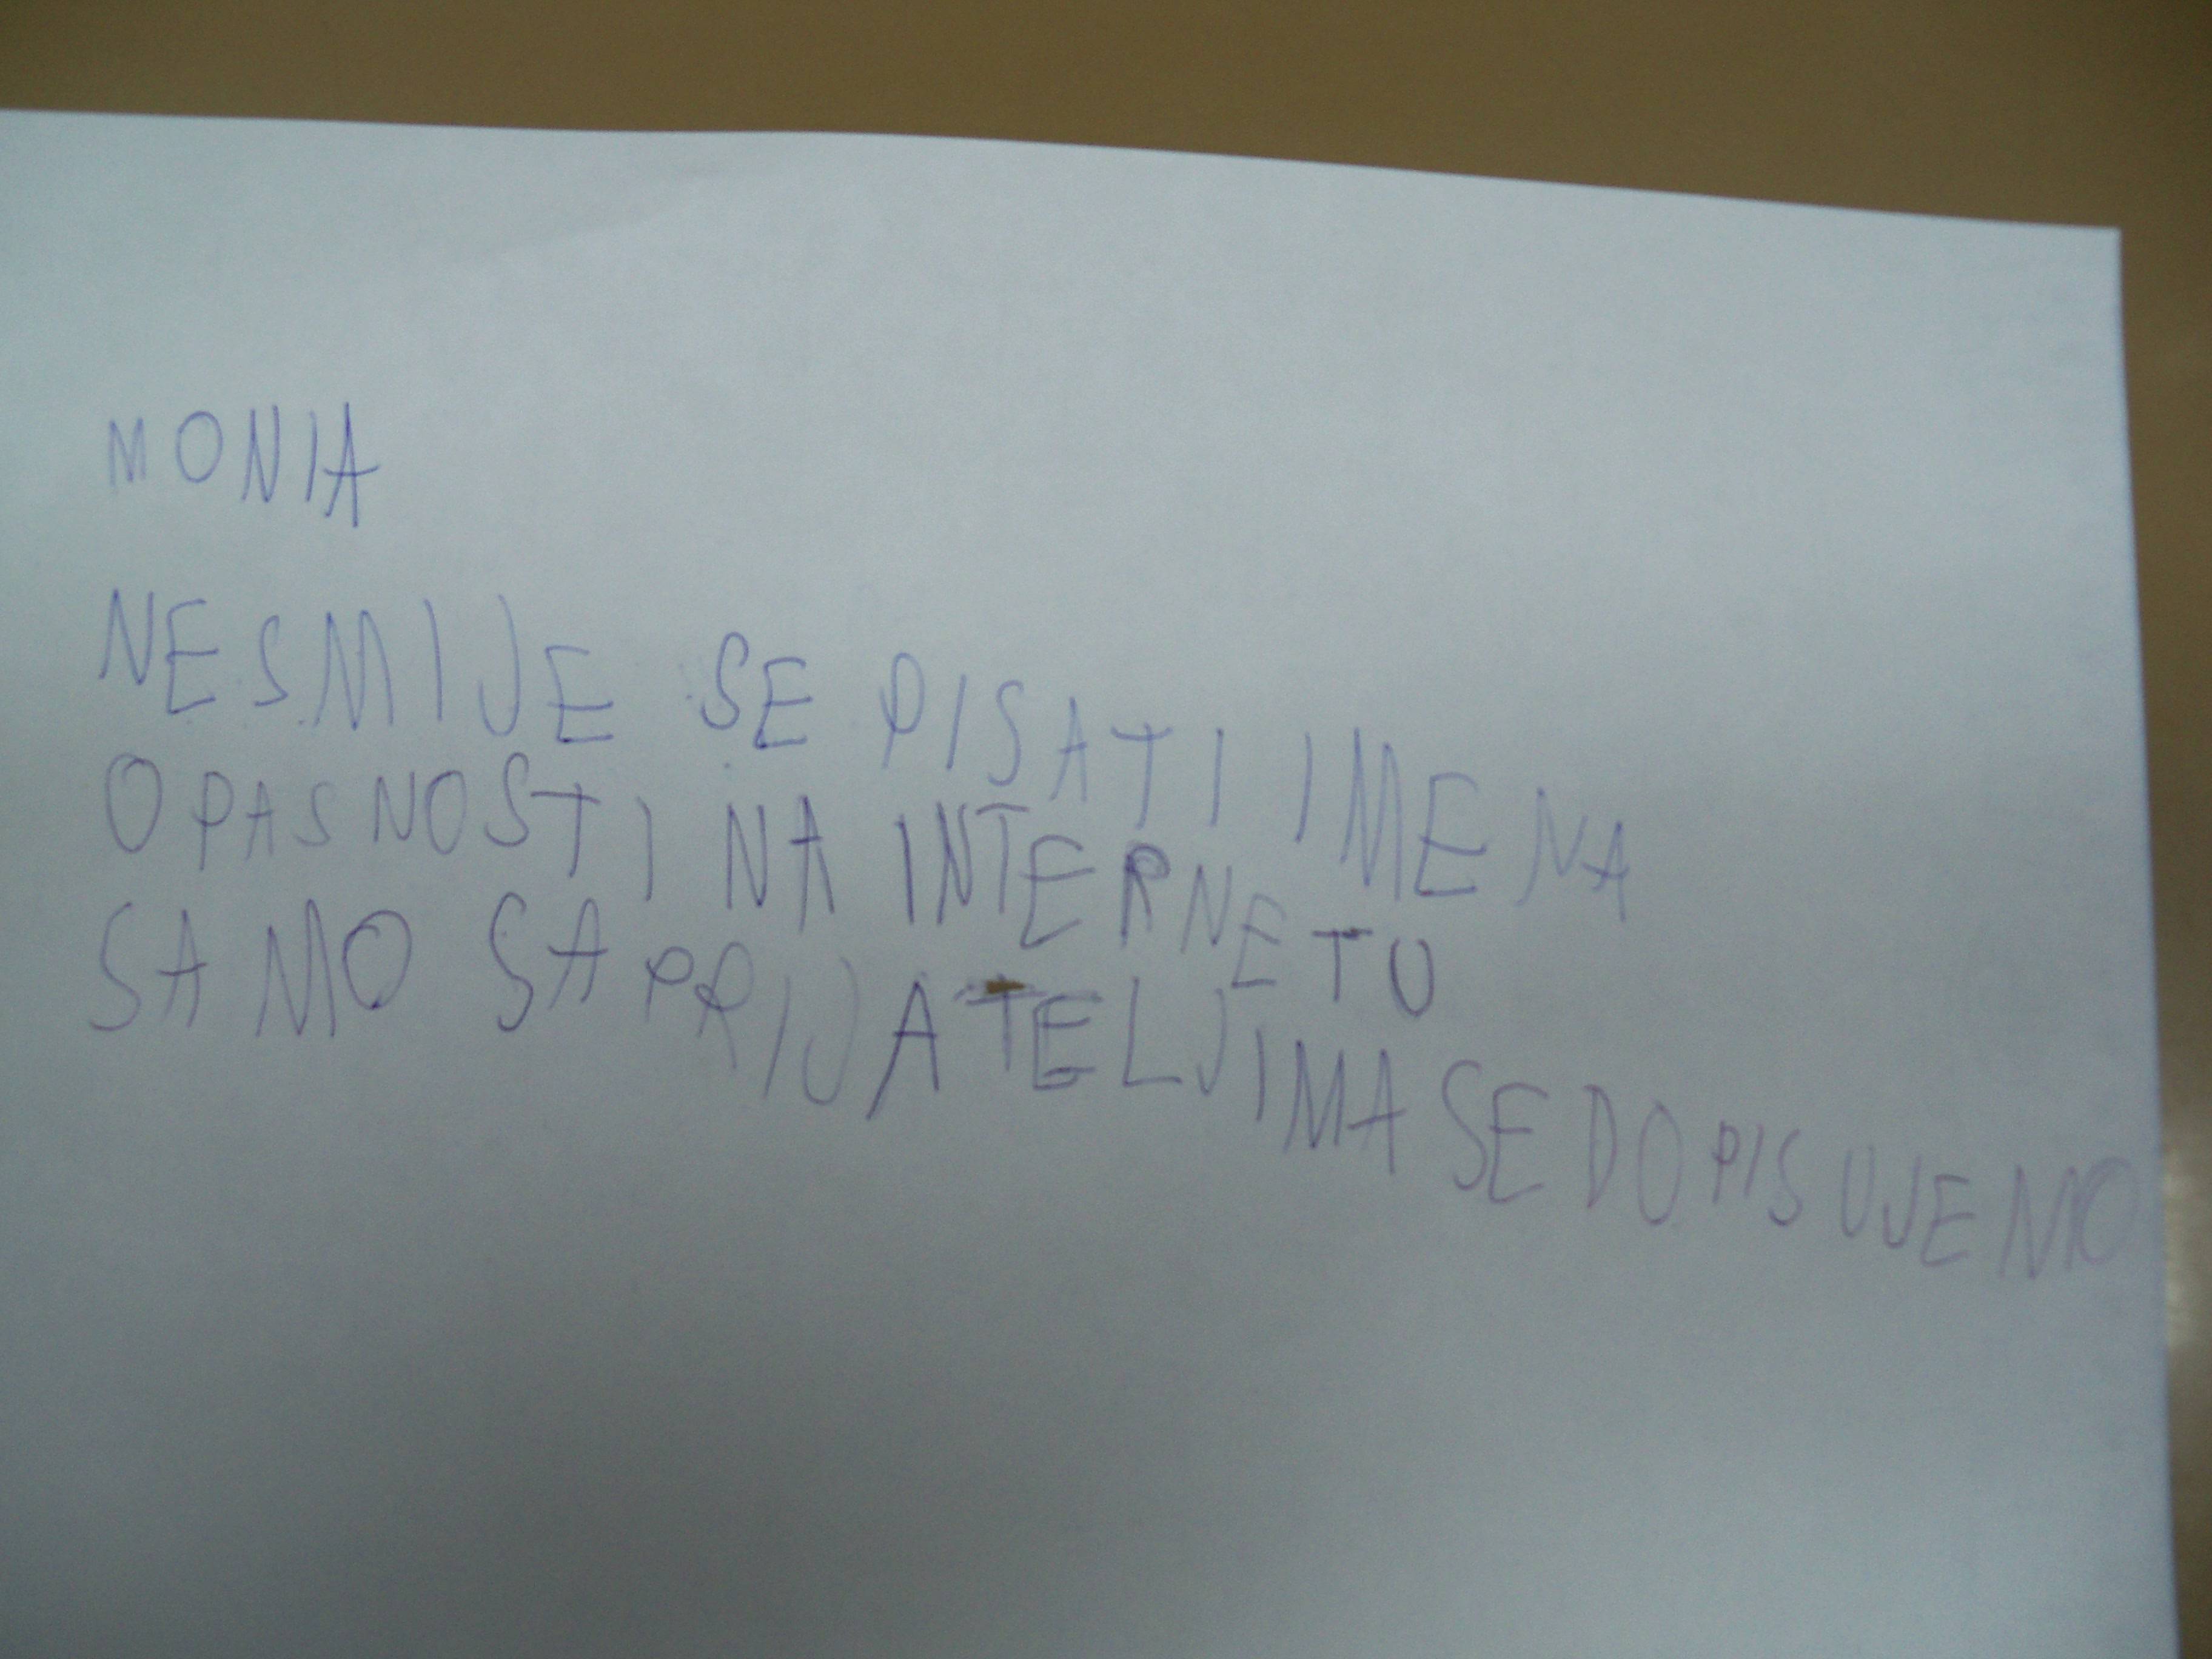 MONIA
NESMIJE SE PISATI IMENA
OPASNOSTI NA INTERNETU
SAMO SA PRIJATELJIMA SE DOPISUJEMO